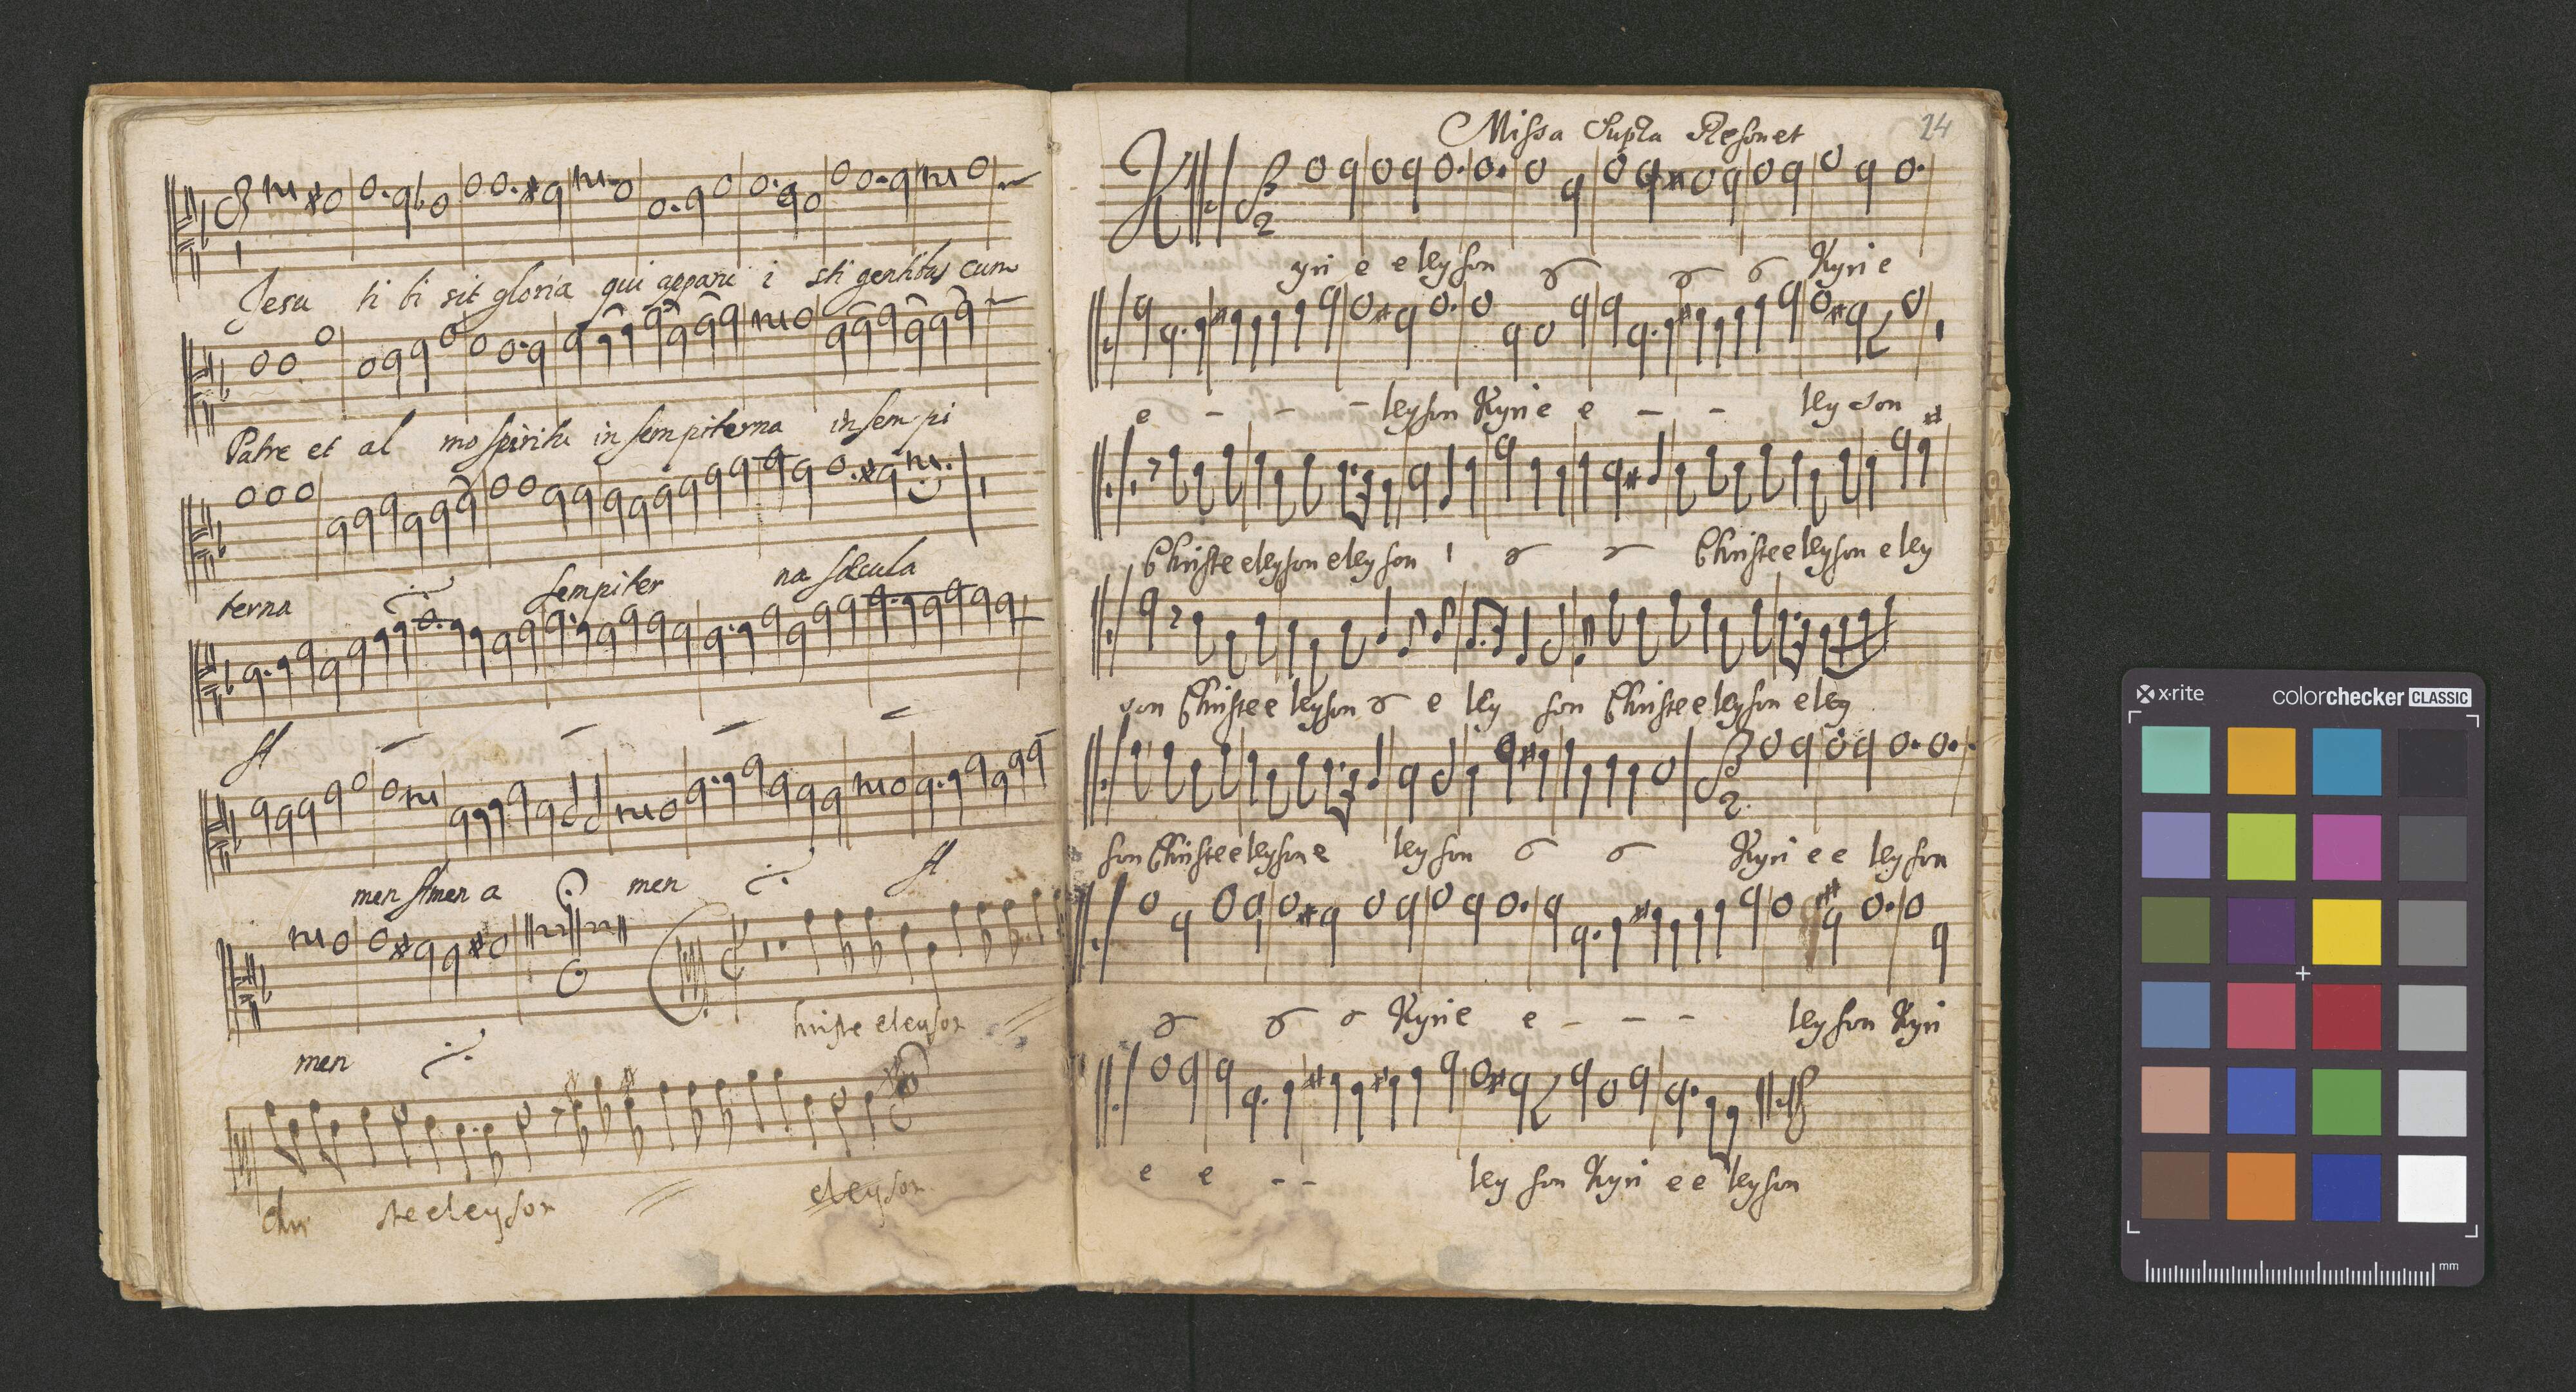 Jesu ti bi sit gloria qui appari i sti gentibus cum
Patre et al mo spiritu in sempiterna in sempi
terna sempiter na sæcula
A
men Amen a men A
men
hriste eleyson
chri ste eleyson eleyson
Missa Supra Resonet
24
K
3
2
yri e eleyson Kyrie
e - - - leyson Kyrie e - - leyson
Christe eleyson eleyson Christe eleyson eley
son Christe eleyson e ley son Christe eleyson eley
son Christe eleyson e leyson Kyri e e leyson
3
2.
Kyrie e - - - leyson Kyri
e e - - ley son Kyri e e leyson
x·rite colorchecker CLASSIC
mm